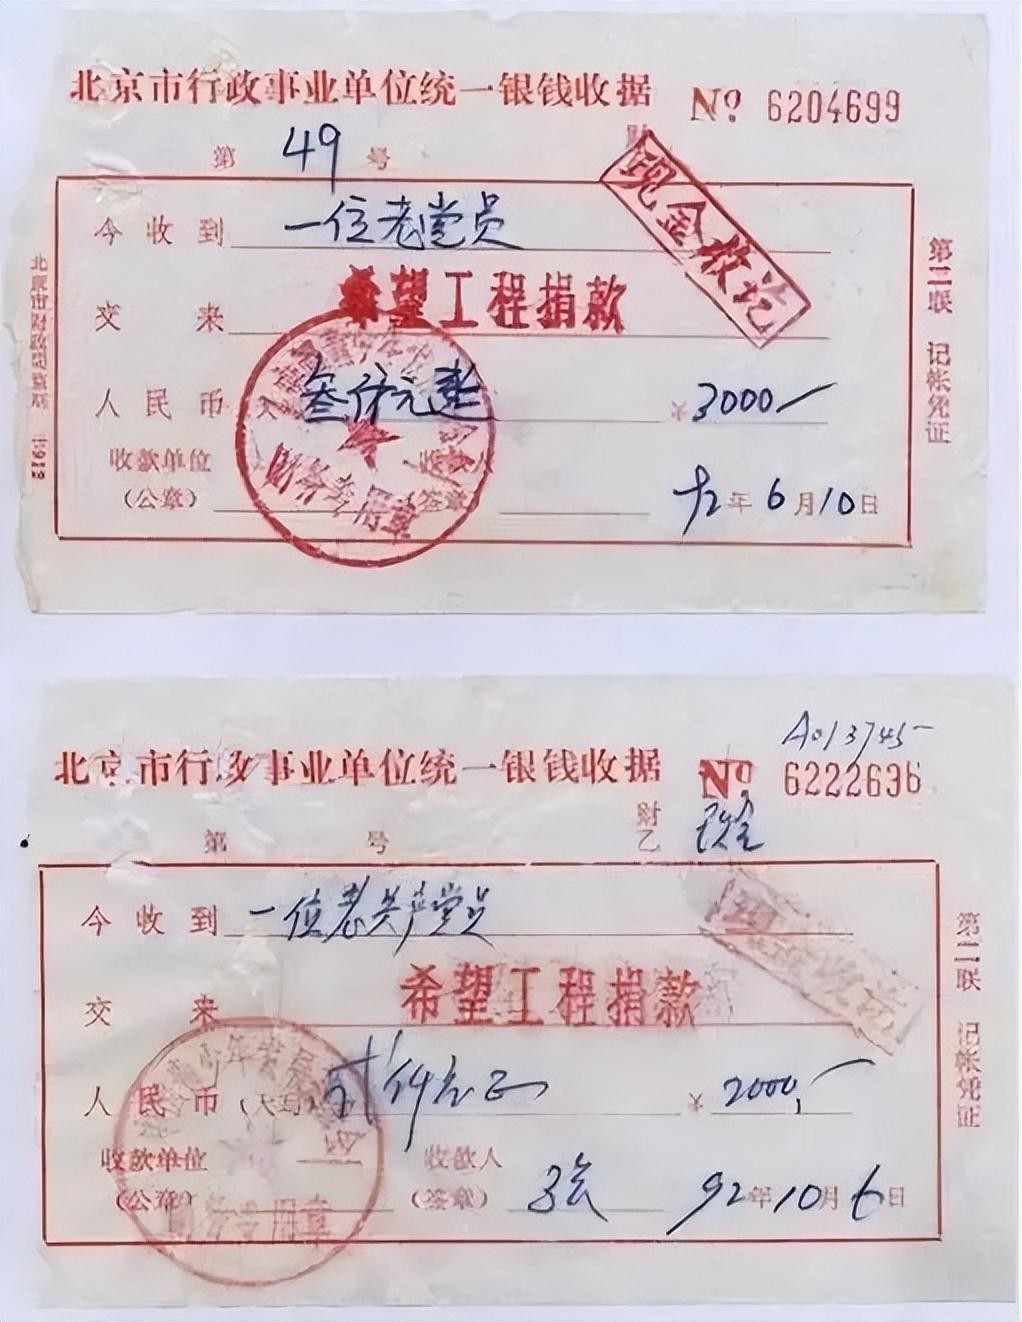 北京市行政事业单位统一银钱收据 № 6204699
第 49 号 财
现金收讫
今收到 一位老党员
交来 希望工程捐款
人民币 叁仟元整 ¥ 3000—
收款单位 收款人
(公章) (签章) 92年6月10日
财务专用章
第二联 记帐凭证
A013745
北京市行政事业单位统一银钱收据 № 6222636
财
第 号 乙
今收到 一位老共产党员
交来 希望工程捐款
人民币(大写) 贰仟元正 ¥ 2000—
收款单位 收款人
(公章) (签章) 92年10月6日
财务专用章
第二联 记帐凭证